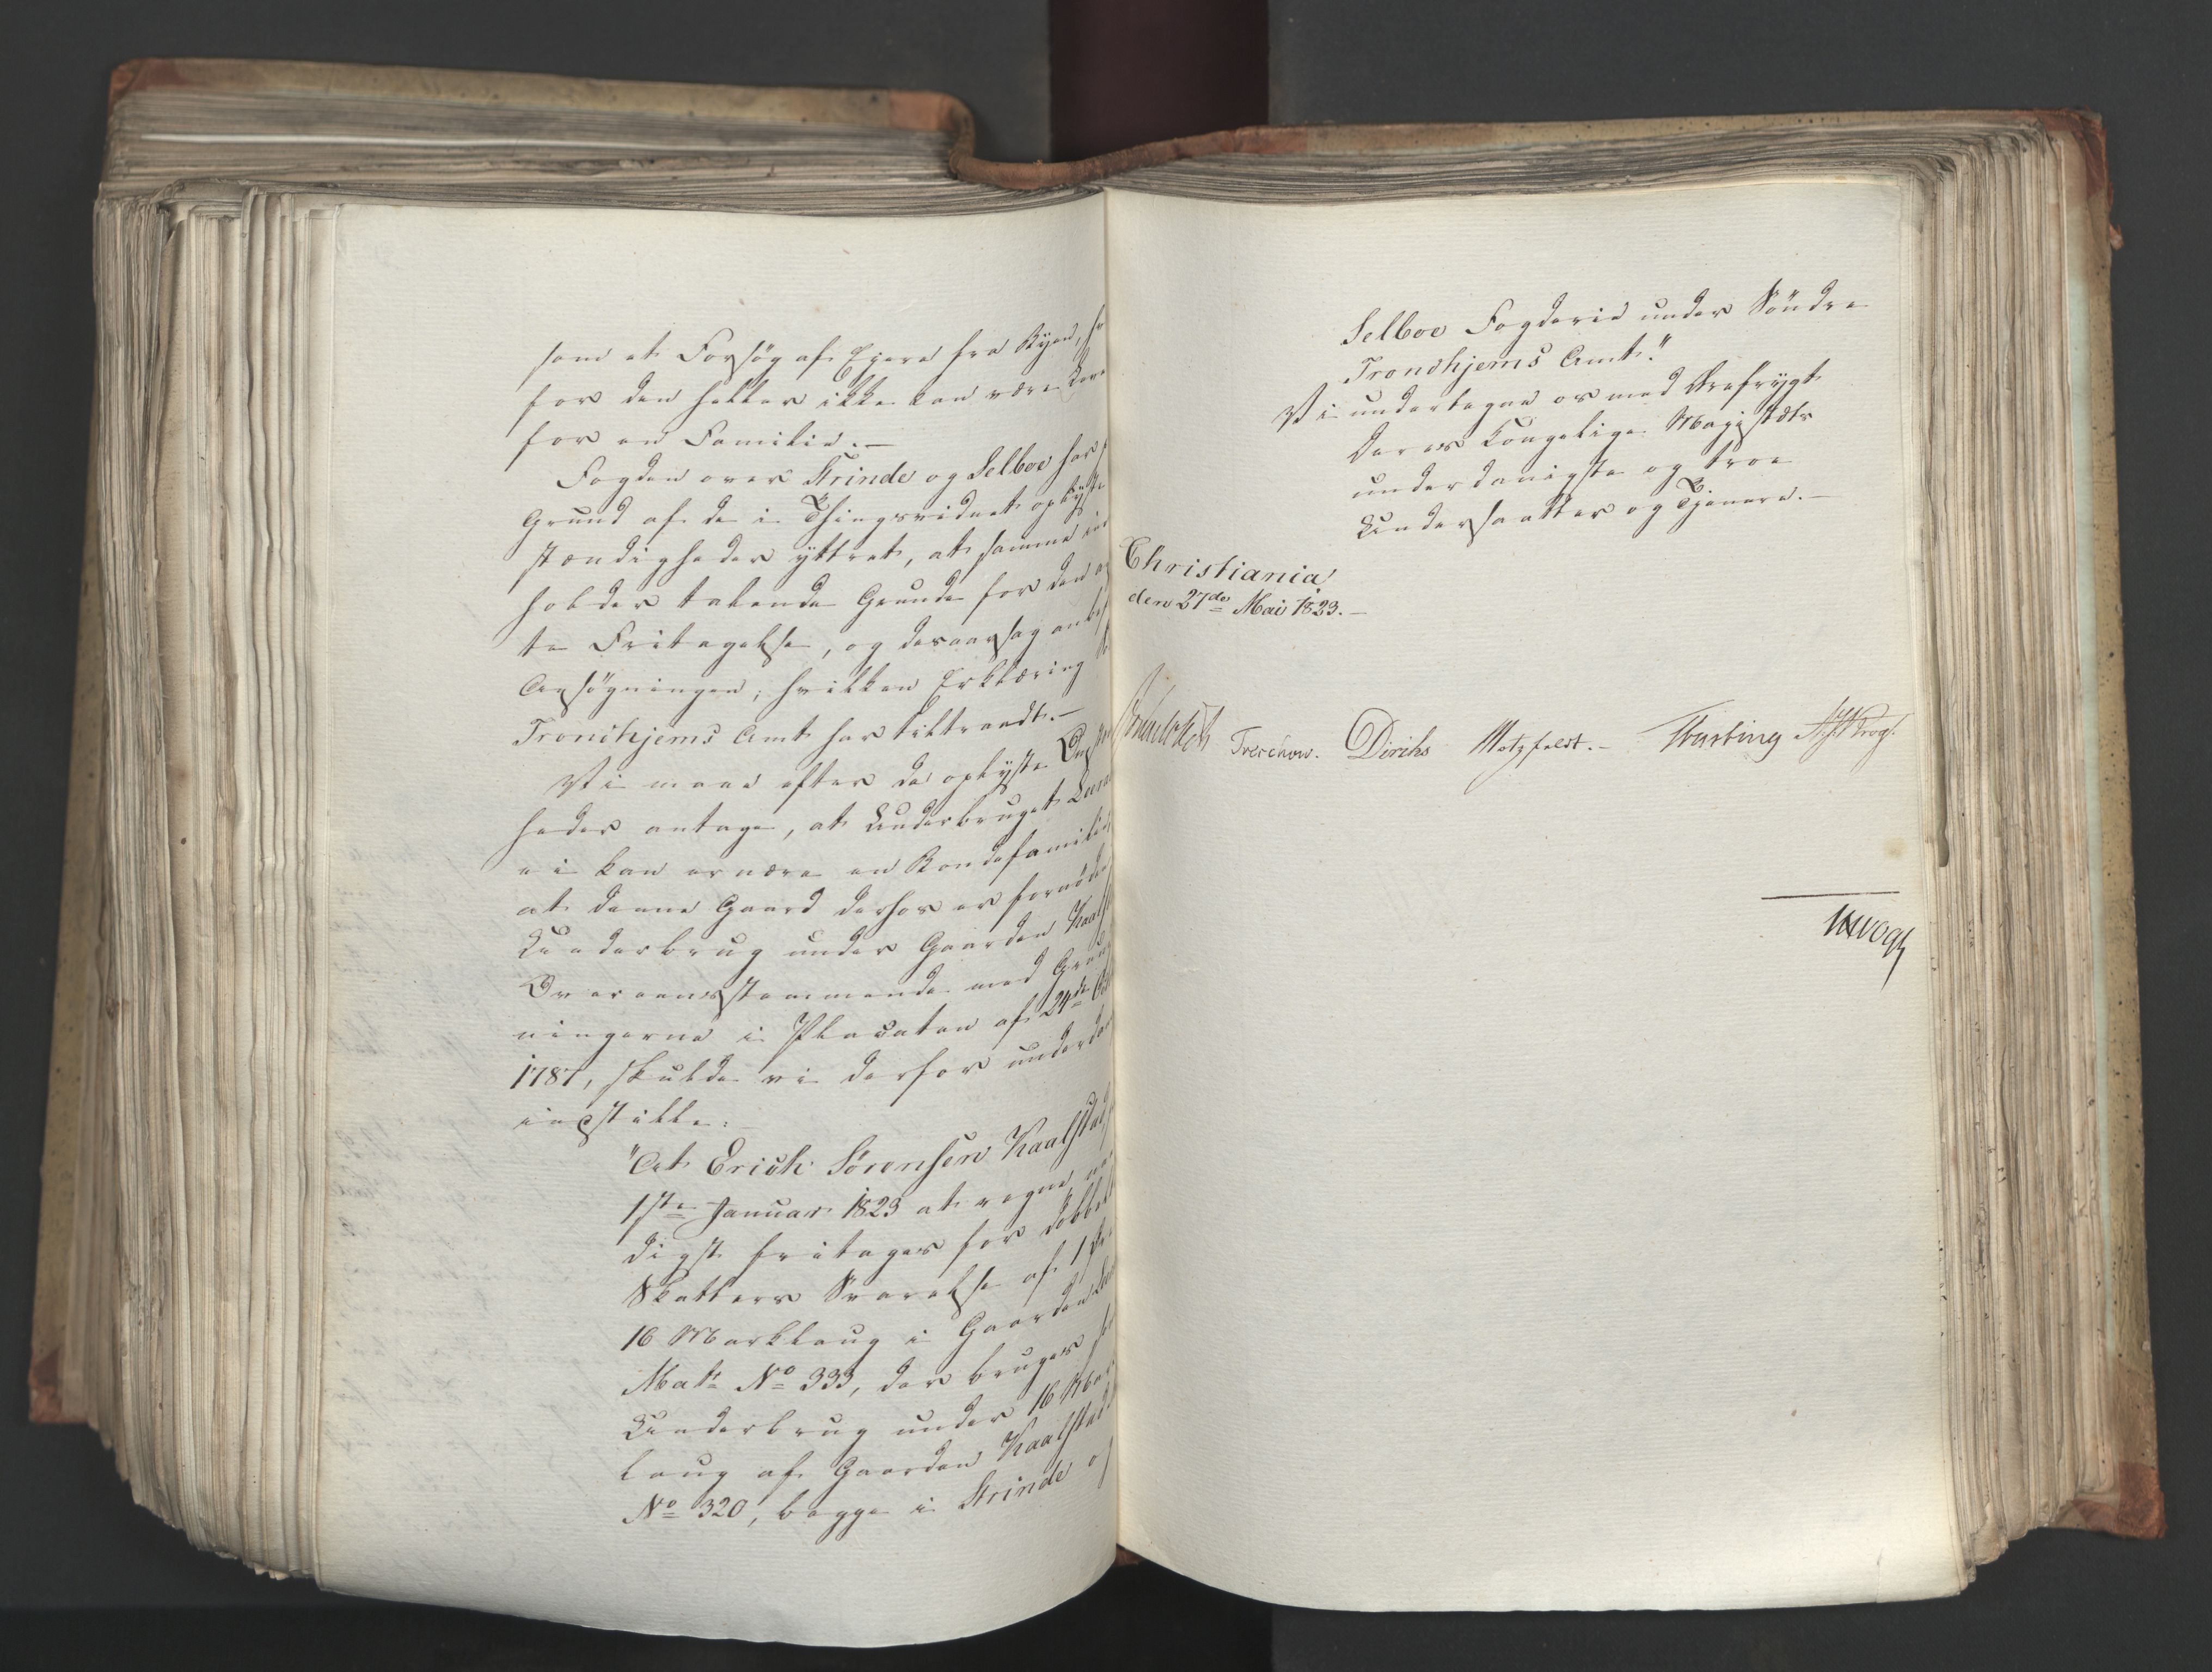 som et Forsøg af Ejere fra Byen, hv
for den heller ikke kan være
for en Familie. —
Fogden over Strinde og Selboe har
Grund af de i Thingsvidnet oplyste
stændigheder yttret, at samme in
holder talende Grunde for den
te Fritagelse, og desaarsag anbef
Ansøgningen; hvilken Erklæring
Trondhjems Amt har tiltraadt. —
Vi maae efter de oplyste Omstæn
heder antage, at Underbruget
ei kan ernære en Bondefamilie
at denne Gaard derhos er fornøden
Underbrug under Gaarden Kaalst
Overeensstemmende med Grund
ningerne i Placaten af 24de Oct
1787, skulde vi derfor underdan
indstille:
"At Erich Sørensen Kaalstad
1ste Januar 1823 at regne
digst fritages for dobbelt
Skatters Svarelse af 1
16 Marklaug i Gaarden
Matr No 333, der bruges
Underbrug under 16 Mark
laug af Gaarden Kaalstad
No 320, begge i Strinde og
Selboe Fogderie under Søndre
Trondhjems Amt."
Vi undertegne os med Ærefrygt
Deres Kongelige Majestæts
underdanigste og troe
Undersaatter og Tjenere. —
Christiania
den 27de Mai 1823. —
Treschow. Diriks Motzfeldt. — Fasting Krog.
Vogt